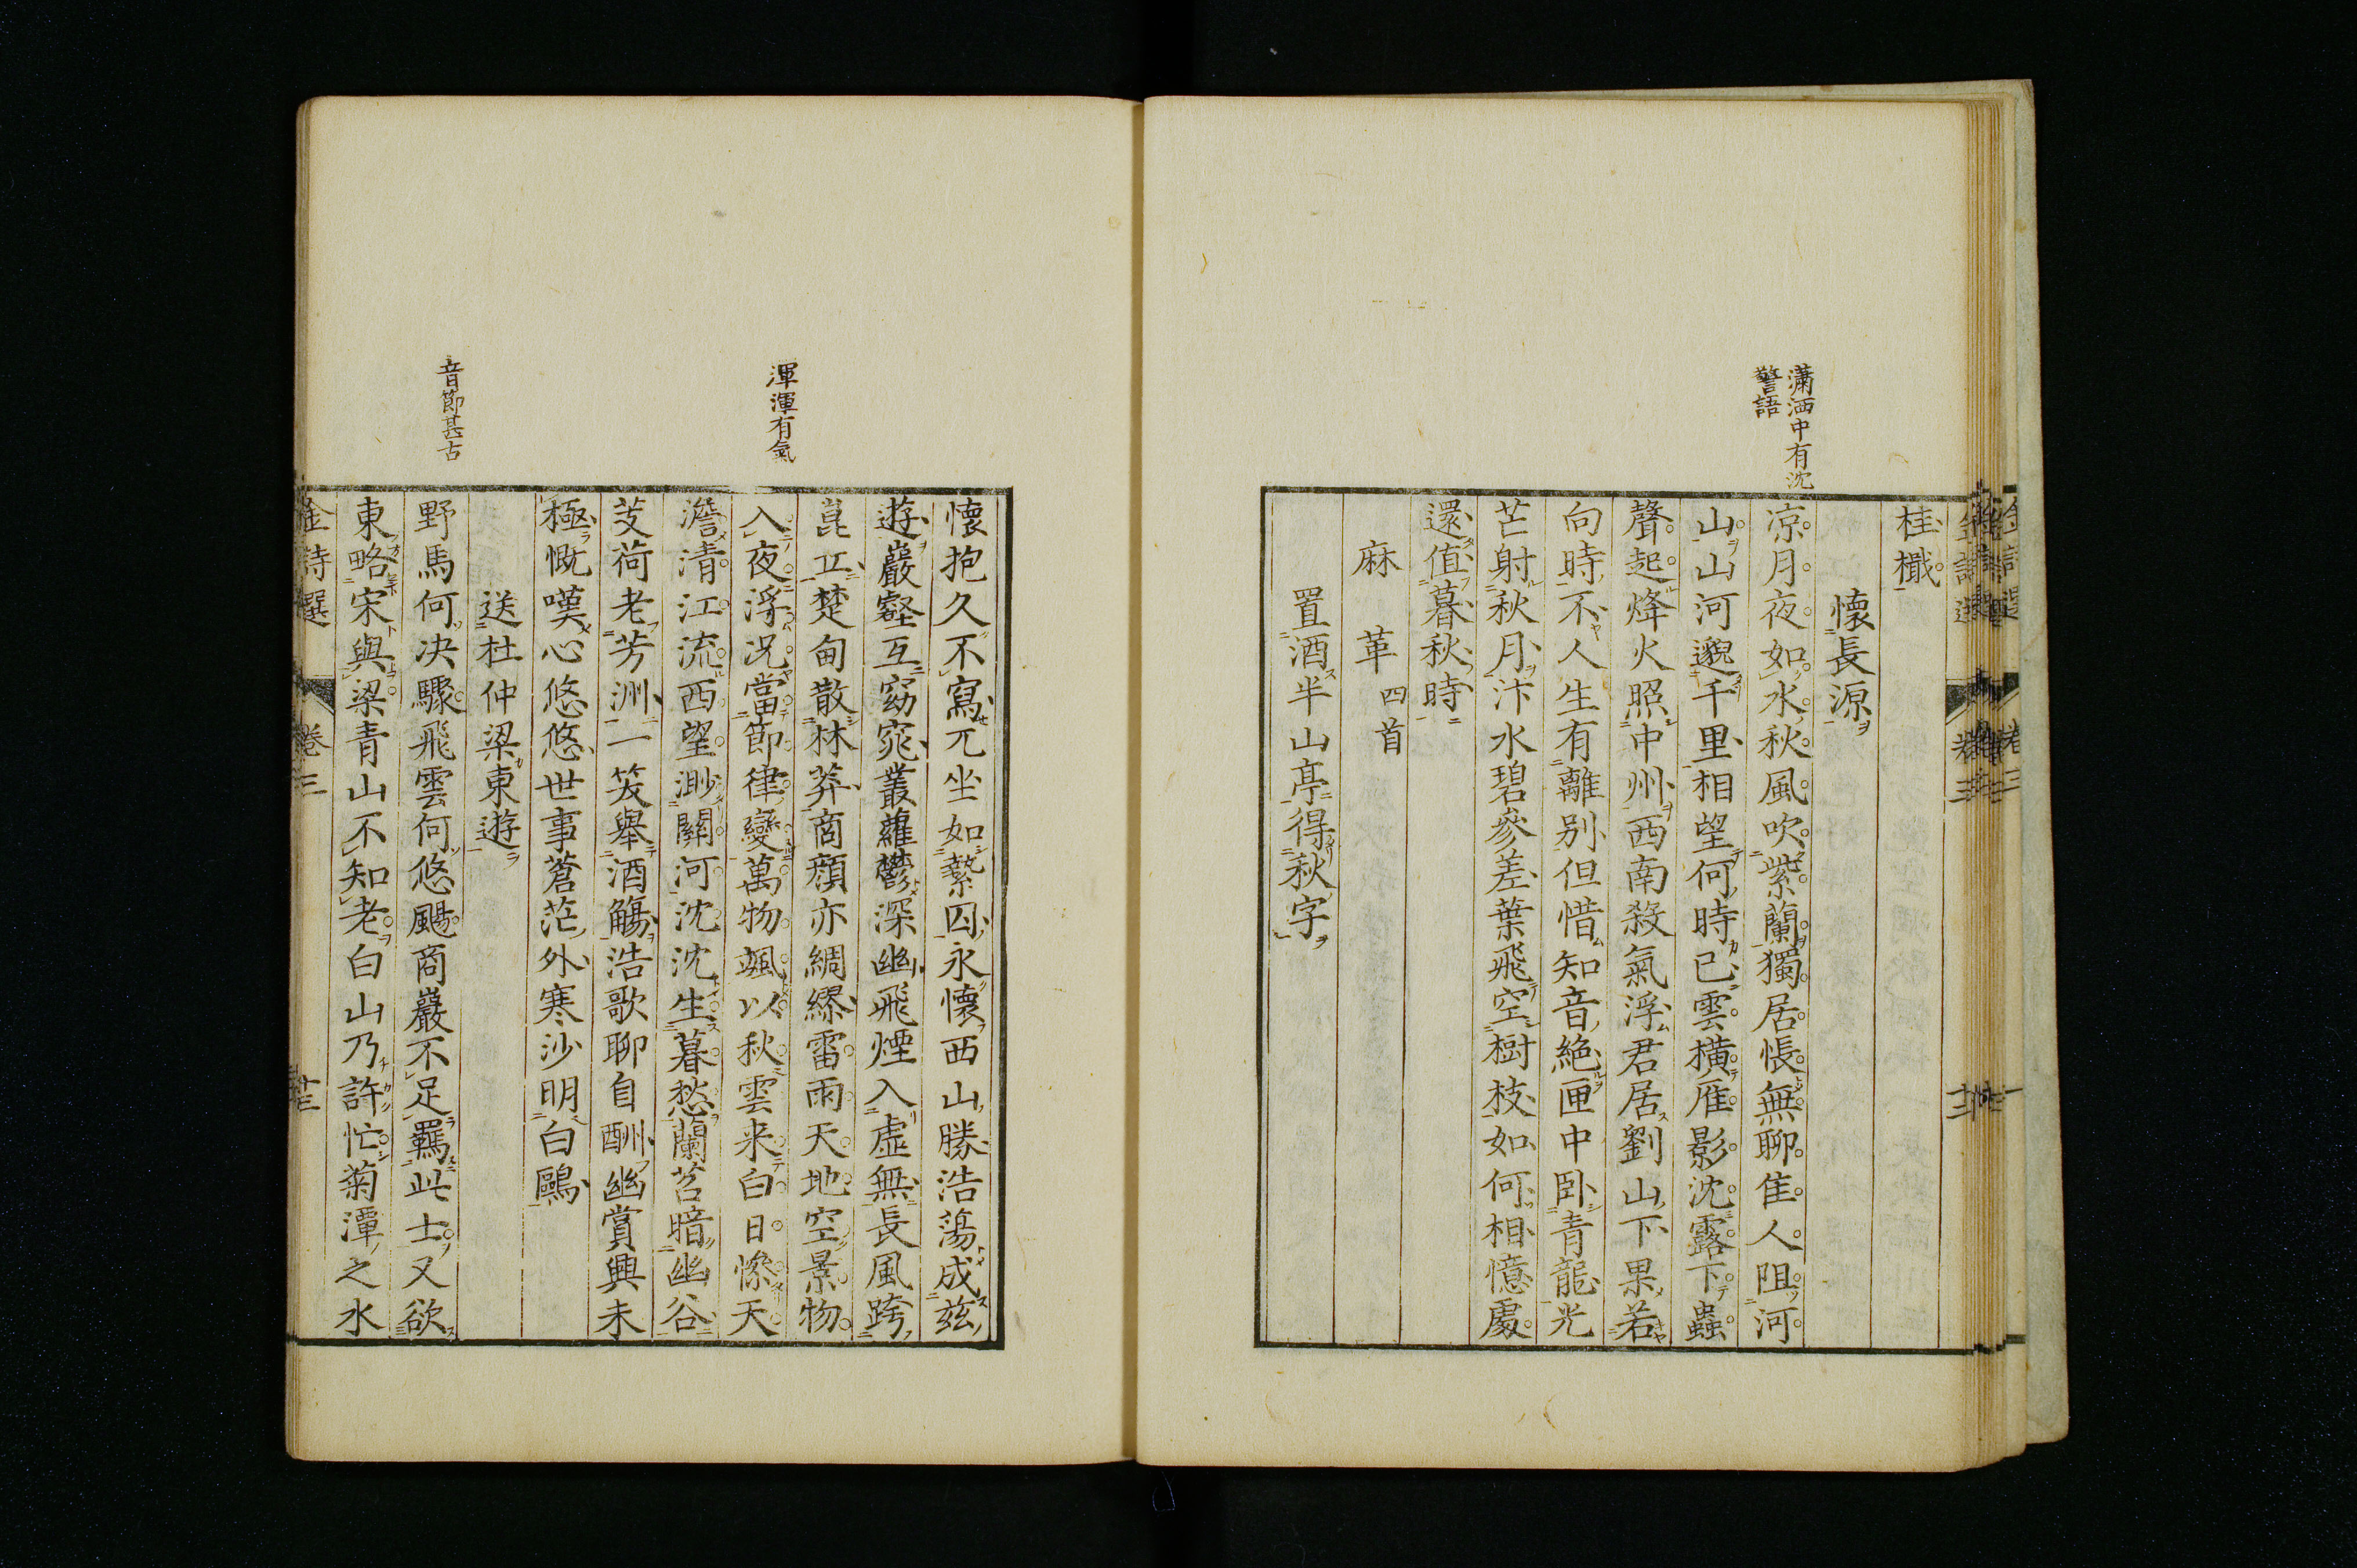 桂檝
懷長源
瀟洒中有沈
警語
凉月夜如水秋風吹紫蘭獨居悵無聊佳人阻河
山山河邈千里相望何時已雲橫雁影沈露下蟲
聲起烽火照中州西南殺氣浮君居劉山下果若
向時不人生有離別但惜知音絶匣中卧青龍光
芒射秋月汴水碧參差葉飛空樹枝如何相憶處
還值暮秋時
麻革四首
置酒半山亭得秋字
懷抱久不寫兀坐如縶囚永懷西山勝浩蕩成玆
遊巖壑互窈窕叢蘿鬱深幽飛煙入虛無長風跨
崑丘楚甸散林莽商顔亦綢繆雷雨天地空景物
渾渾有氣
入夜浮况當節律變萬物颯以秋雲来白日慘天
澹清江流西望渺關河沈沈生暮愁蘭苕暗幽谷
芰荷老芳洲一笑舉酒觴浩歌聊自酬幽賞興未
極慨嘆心悠悠世事蒼茫外寒沙明白鷗
送杜仲梁東遊
音節甚古
野馬何决驟飛雲何悠颺商巖不足羈此士又欲
東略宋與梁青山不知老白山乃許忙菊潭之水
金詩選 卷三 十三